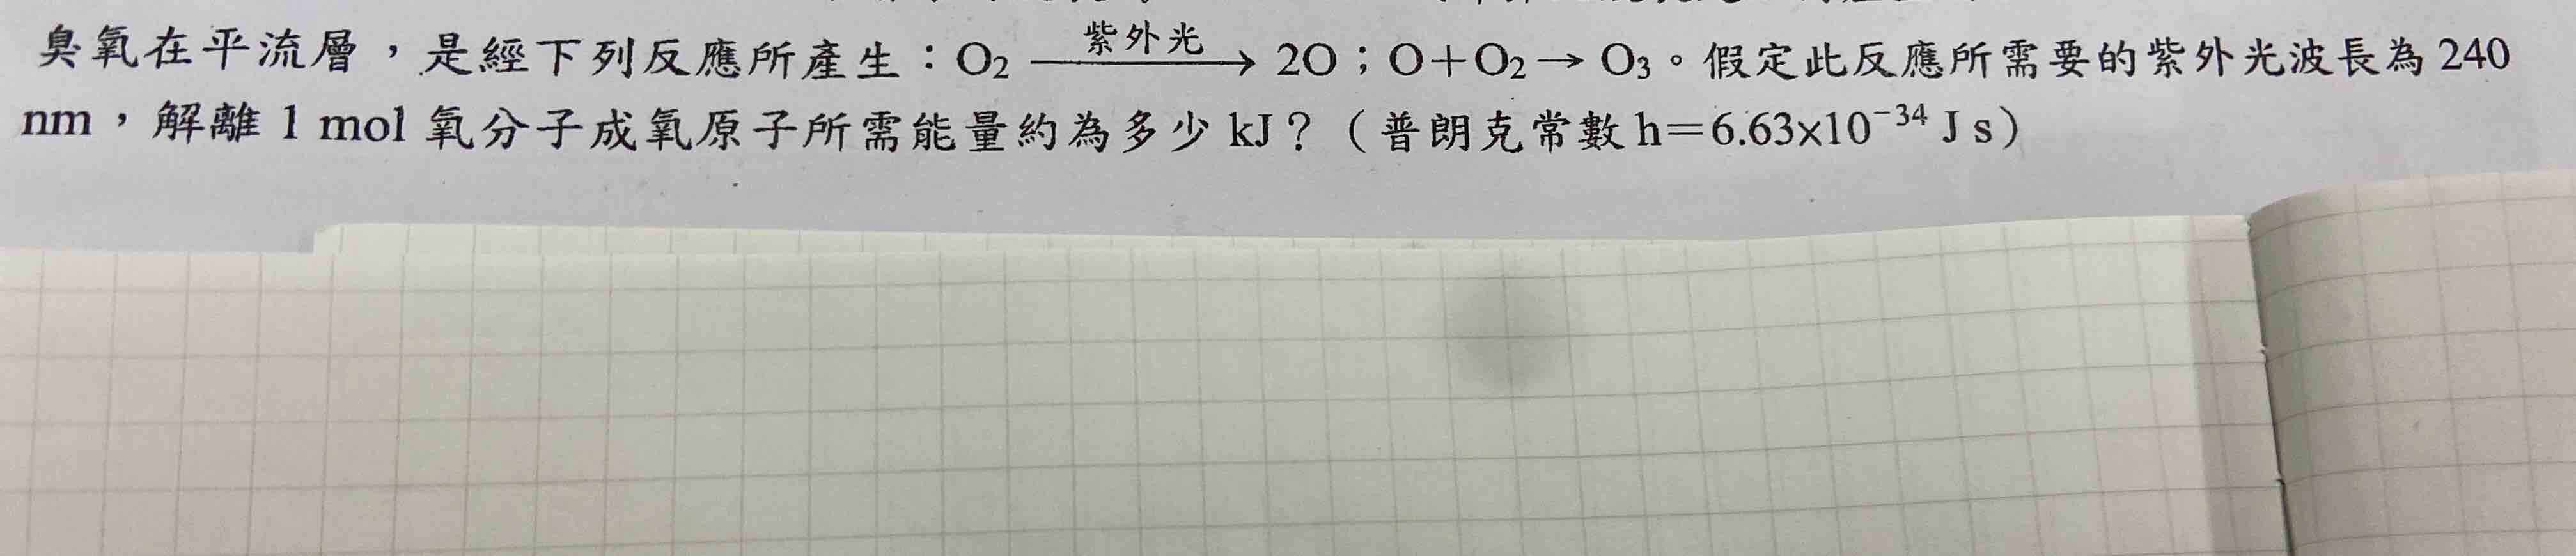 臭氧在平流層，是經下列反應所產生：O₂ 紫外光→ 2O；O＋O₂→ O₃。假定此反應所需要的紫外光波長為 240
nm，解離 1 mol 氧分子成氧原子所需能量約為多少 kJ？（普朗克常數 h＝6.63×10⁻³⁴ J s）